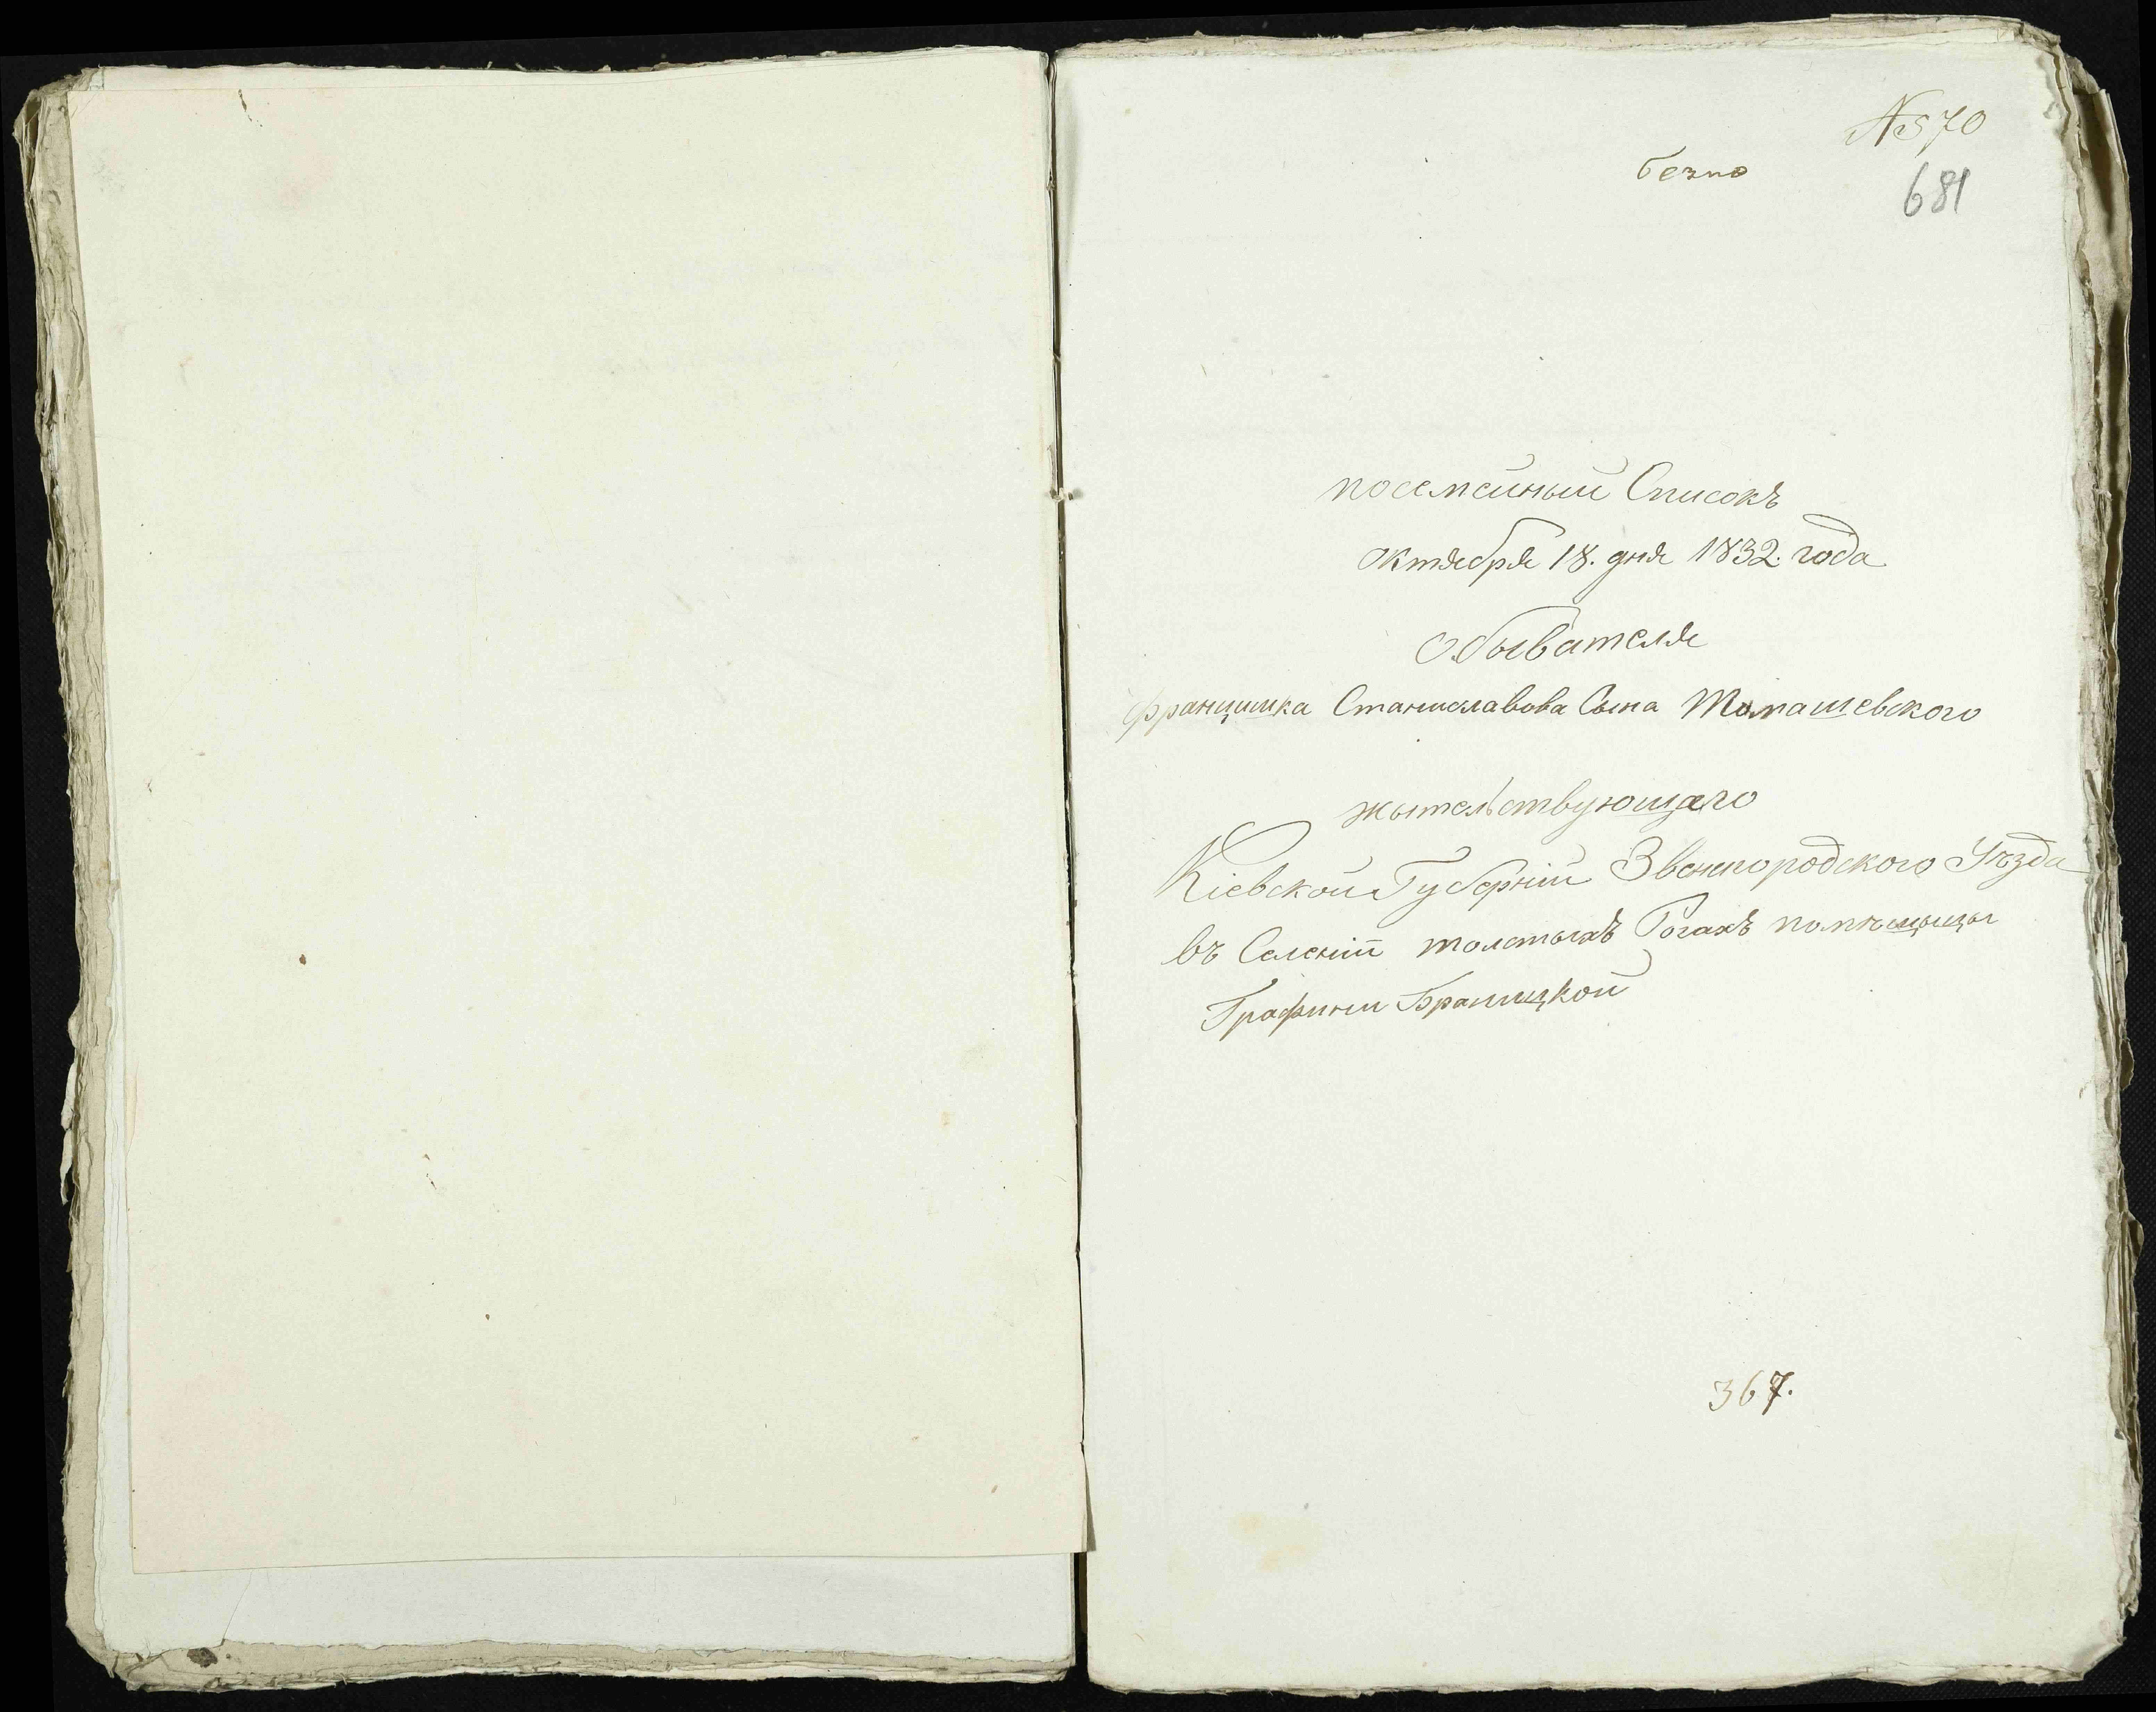 № 570
безпо
681
посемейный Списокъ
Октября 18. дня 1832. года
Обывателя
Францишка Станиславова Сына Томашевского
жытельствующаго
Кіевской Губерніи Звенигородского Уѣзда
въ Селеніи толстыхъ Рогахъ помѣщыцы
Графини Браницкой
367.